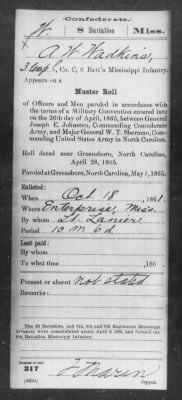 Confederate.
W. 8 Battalion Miss.
A. W. Wadkins,
3 Corp'l, Co. C, 8 Batt'n Mississippi Infantry.
Appears on a
Muster Roll
of Officers and Men paroled in accordance with
the terms of a Military Convention entered into
on the 26th day of April, 1865, between General
Joseph E. Johnston, Commanding Confederate
Army, and Major General W. T. Sherman, Com-
manding United States Army in North Carolina.
Roll dated near Greensboro, North Carolina,
April 28, 1865.
Paroled at Greensboro, North Carolina, May 1, 1865.
Enlisted:
When Oct 18, 1861.
Where Enterprise, Miss.
By whom Lt. Lanier
Period 10 m 6 d
Last paid:
By whom
To what time , 186
Present or absent not stated
Remarks:
The 8th Battalion, and 5th, 8th and 32d Regiments Mississippi
Infantry were consolidated about April 9, 1865, and formed the
8th Battalion Mississippi Infantry.
Number of roll:
217
Copyist.